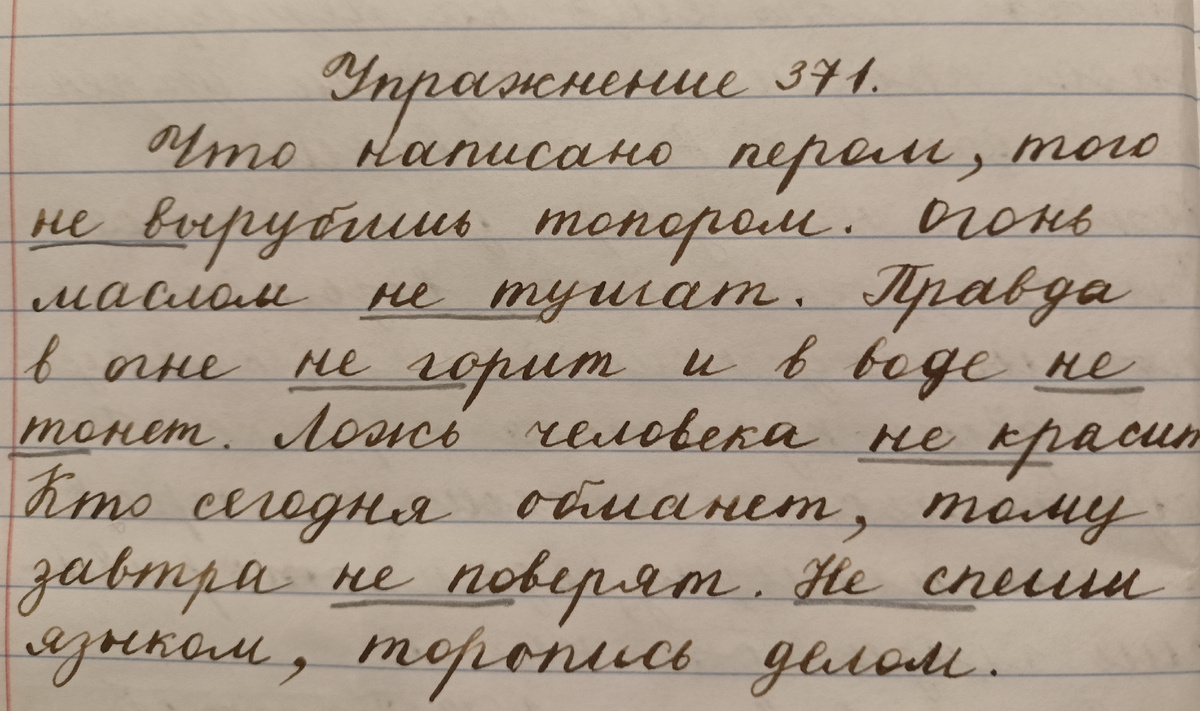 Упражнение 371.
Что написано пером, того
не вырубишь топором. Огонь
маслом не тушат. Правда
в огне не горит и в воде не
тонет. Ложь человека не красит
Кто сегодня обманет, тому
завтра не поверят. Не спеши
языком, торопись делом.